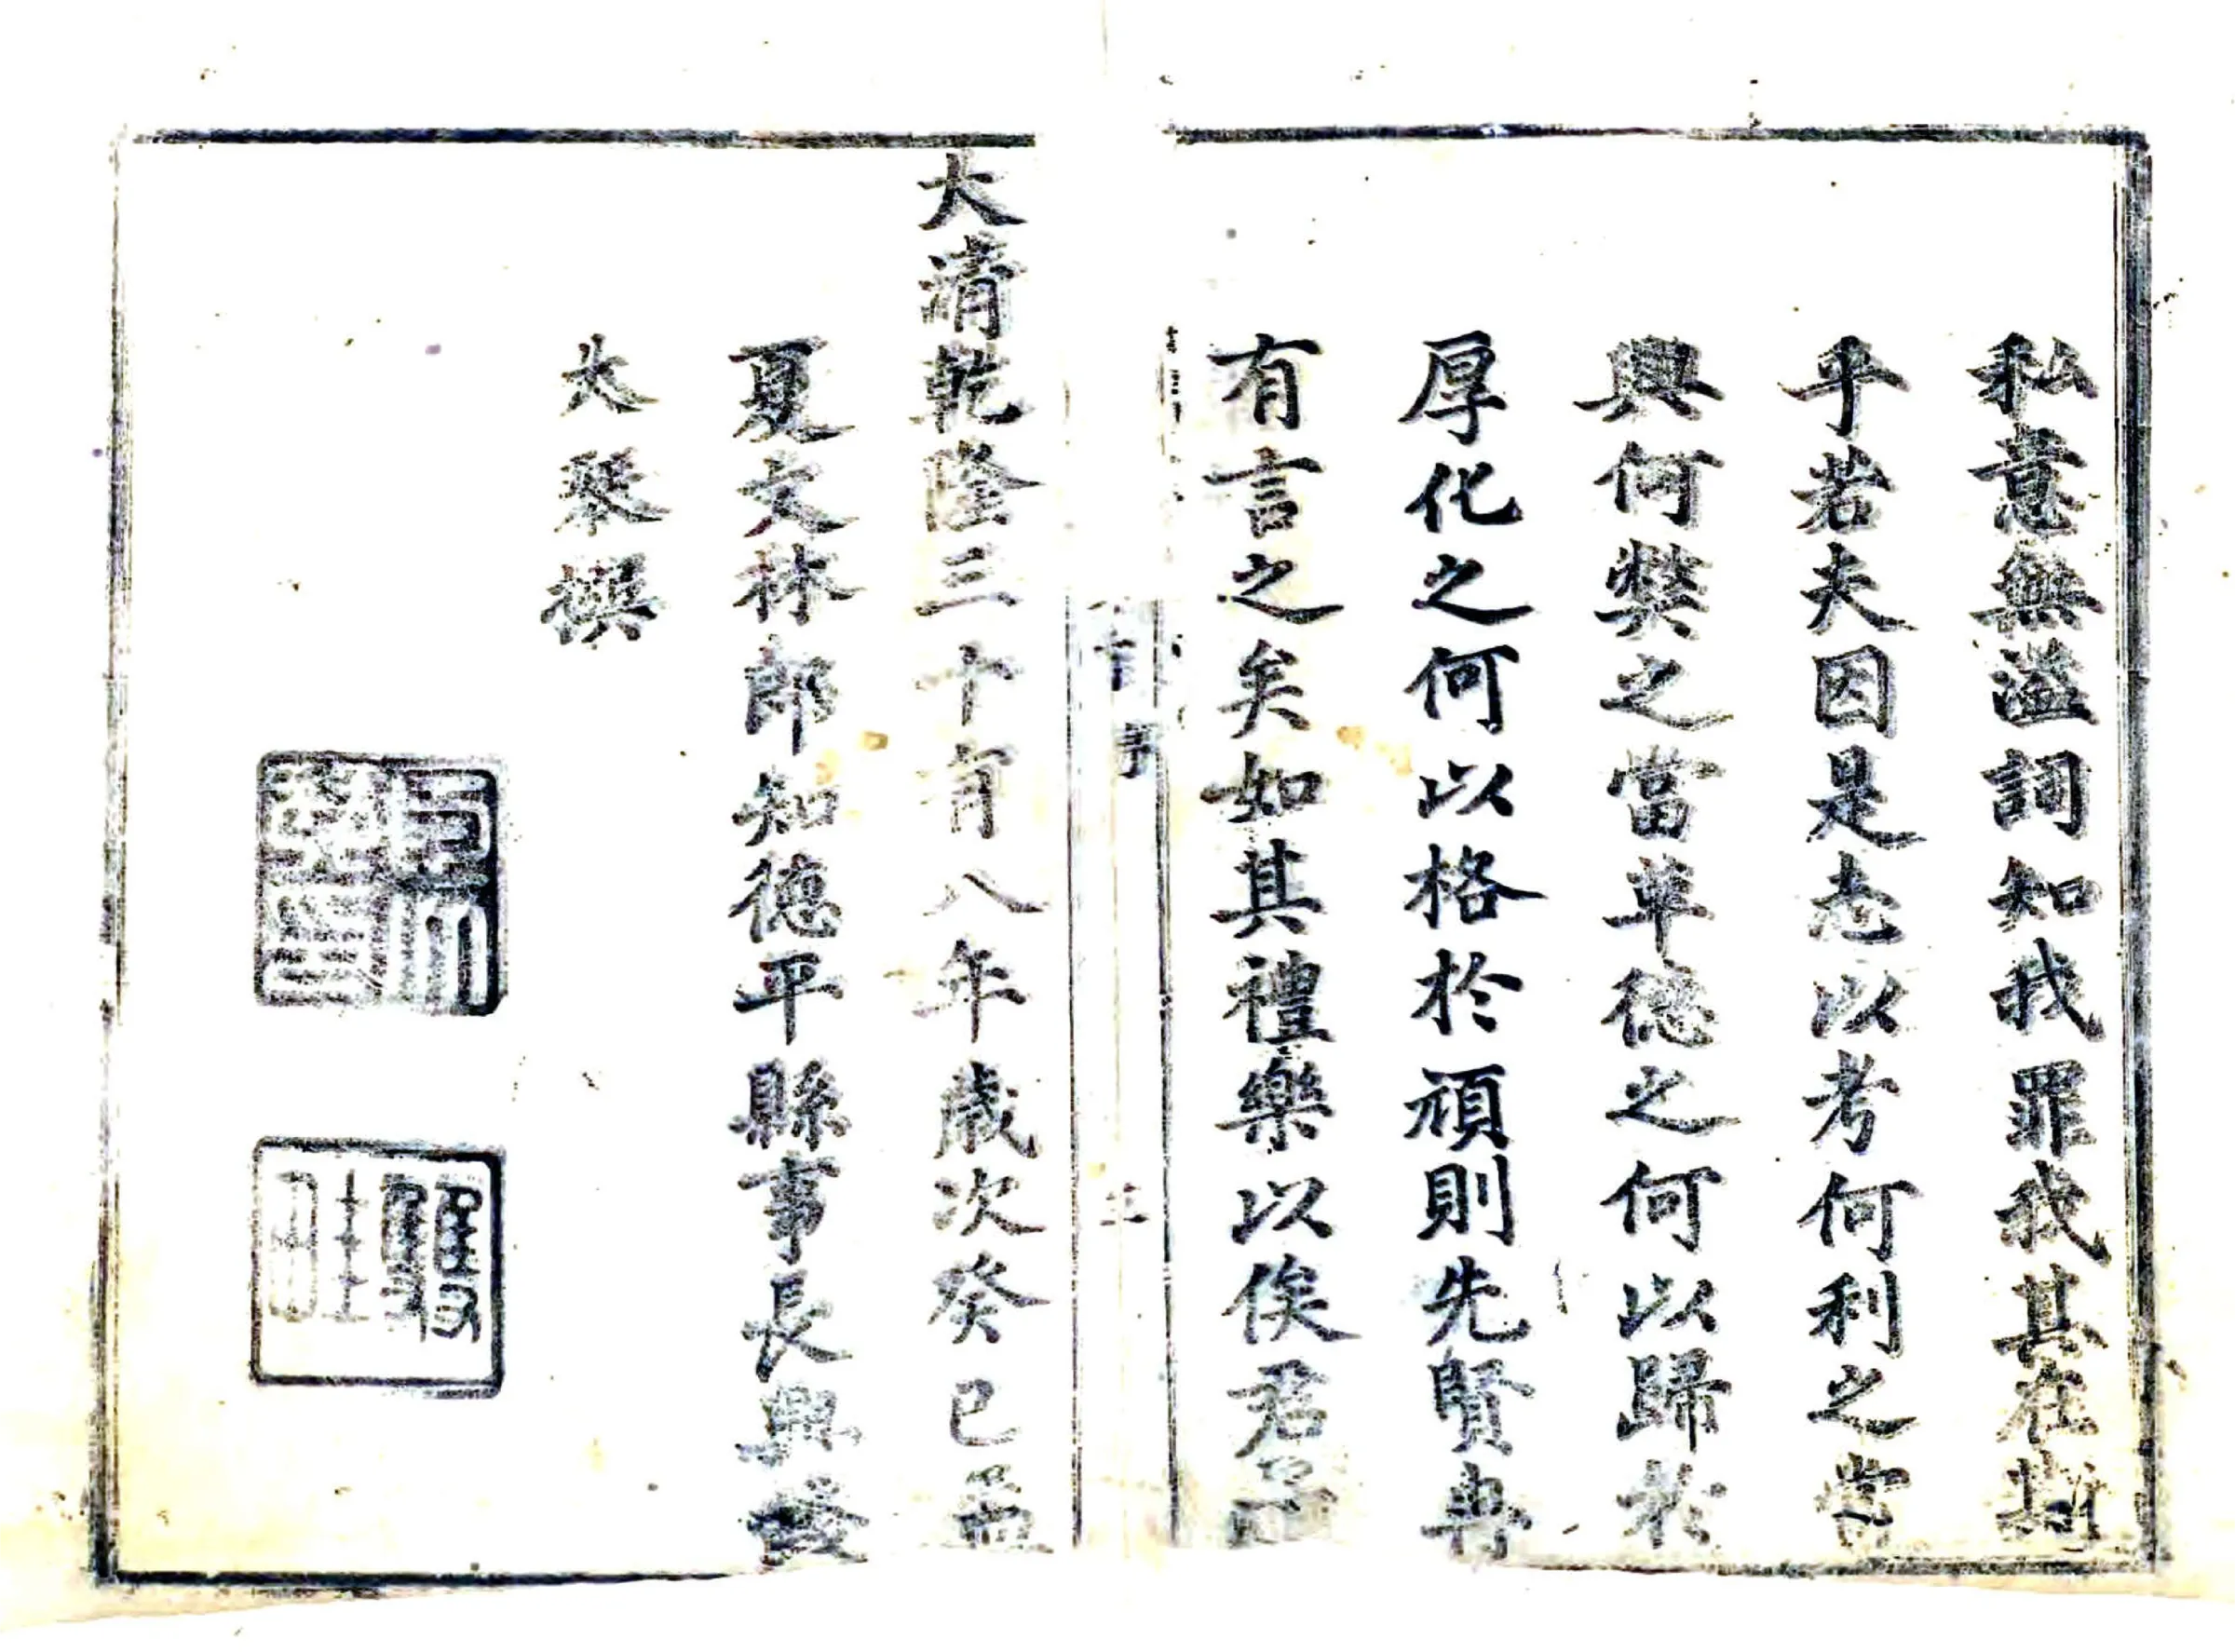 私意無溢詞知我罪我其在斯
乎若夫因是志以考何利之當
興何獘之當革德之何以歸於
厚化之何以格於頑則先賢冉
有言之矣如其禮樂以俟君
序
三
大清乾隆三十有八年歲次癸巳孟
夏文林郎知德平縣事長興
大撰
雙畦